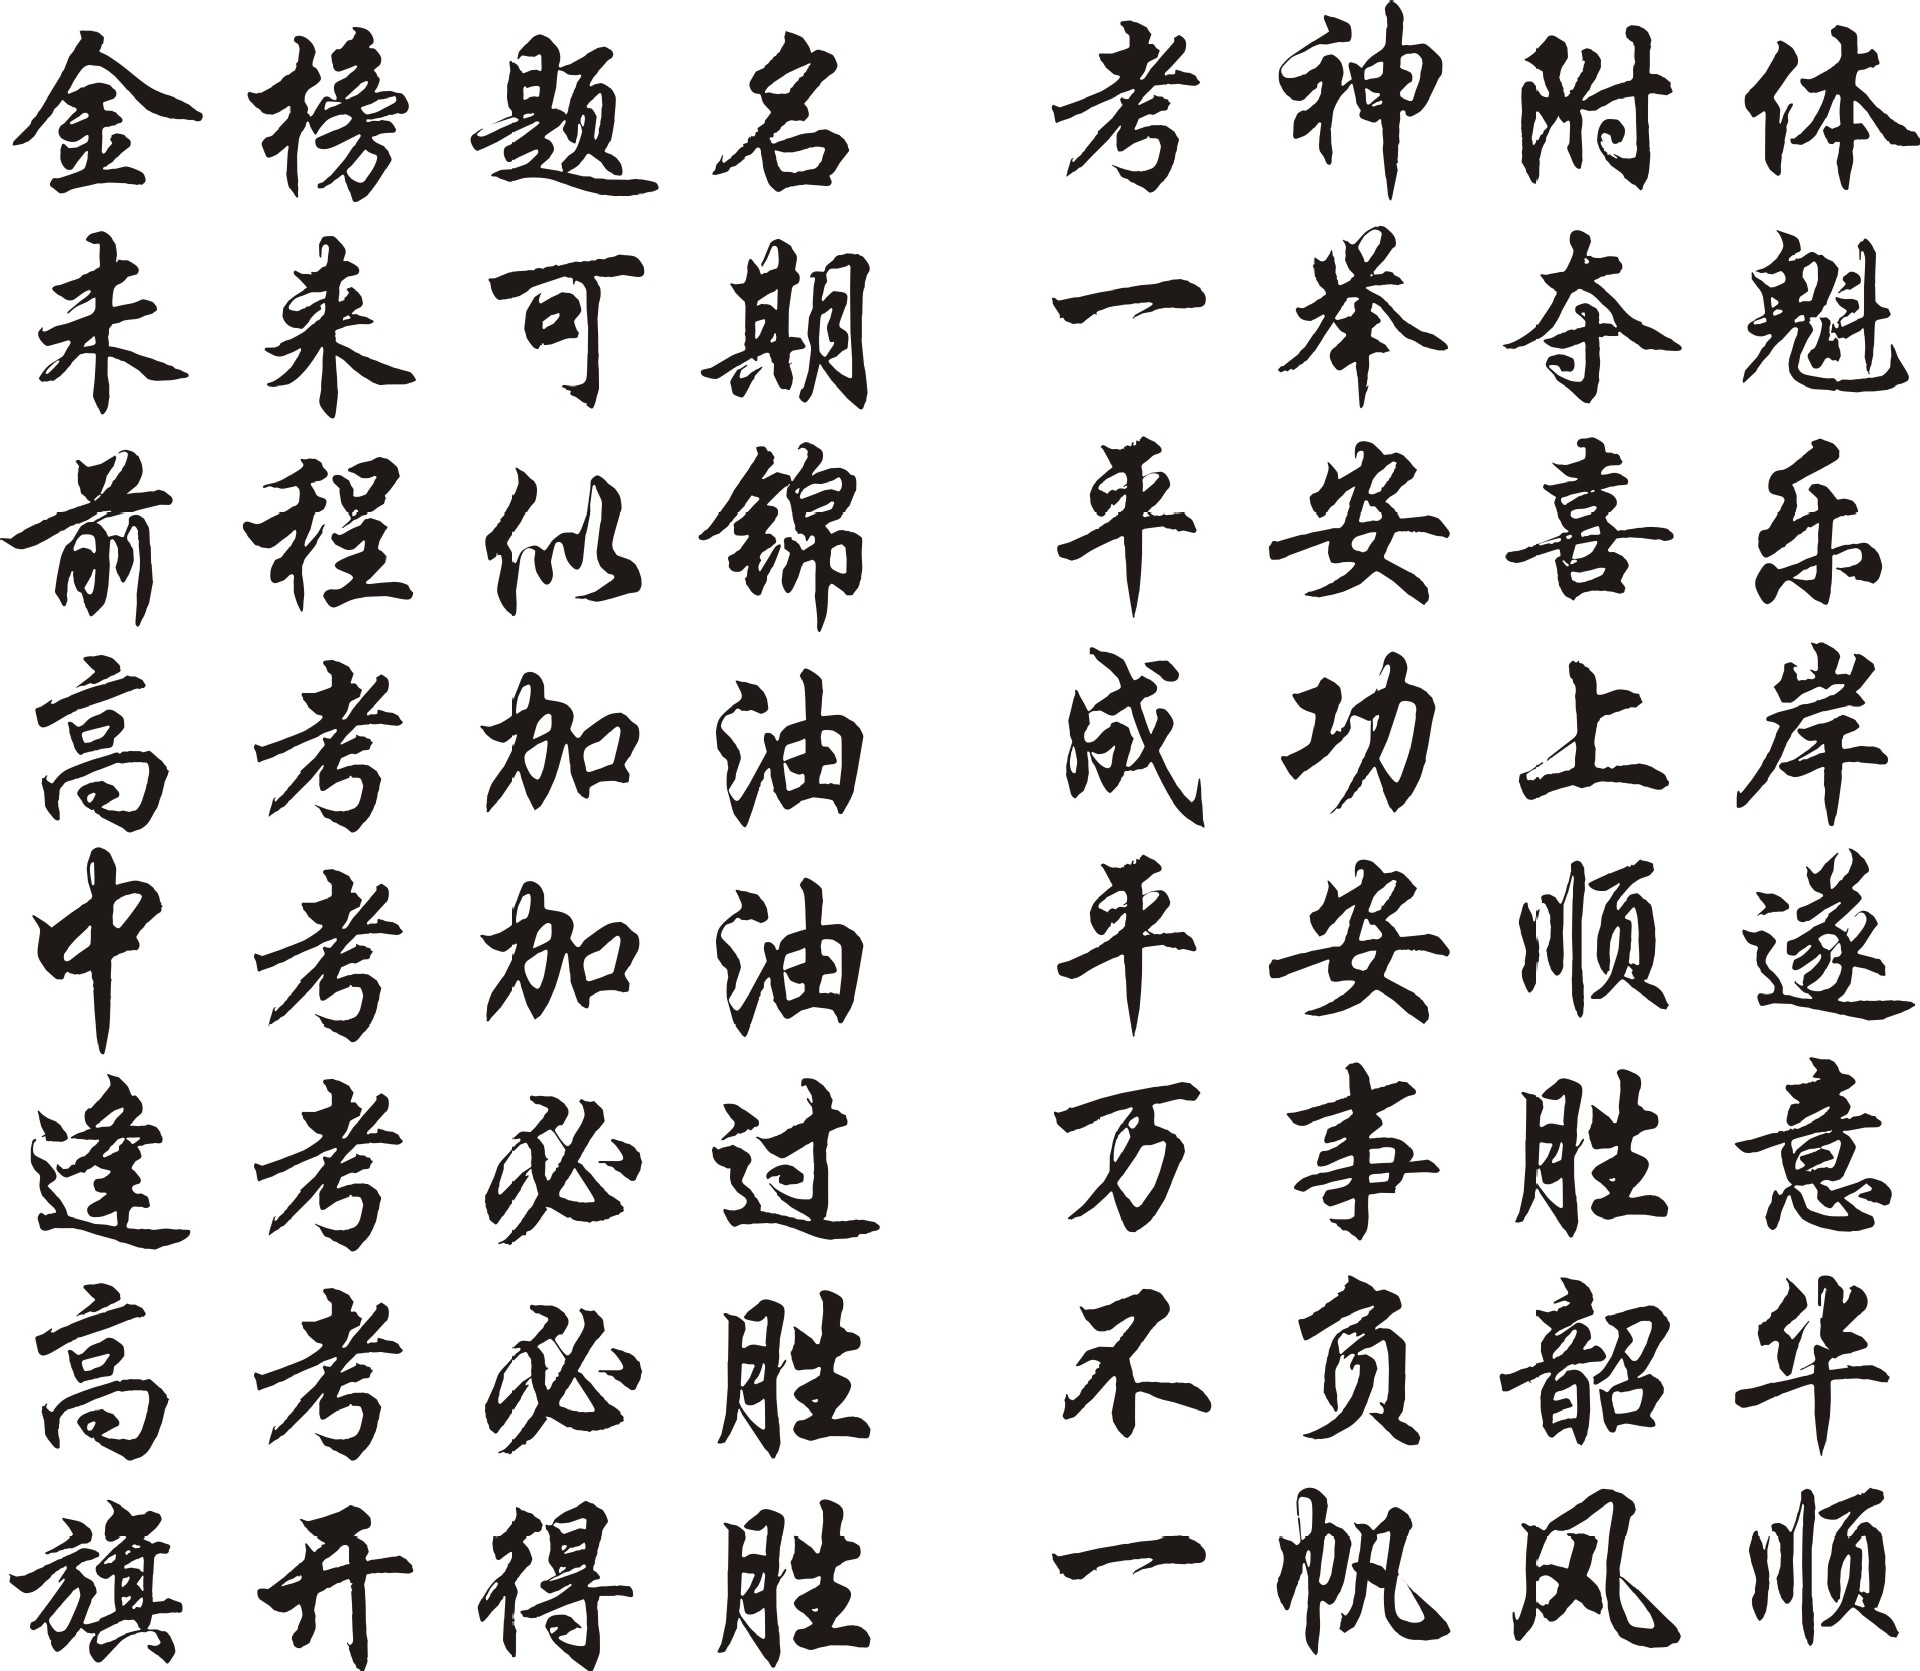 金榜题名 考神附体
未来可期 一举夺魁
前程似锦 平安喜乐
高考加油 成功上岸
中考加油 平安顺遂
逢考必过 万事胜意
高考必胜 不负韶华
旗开得胜 一帆风顺